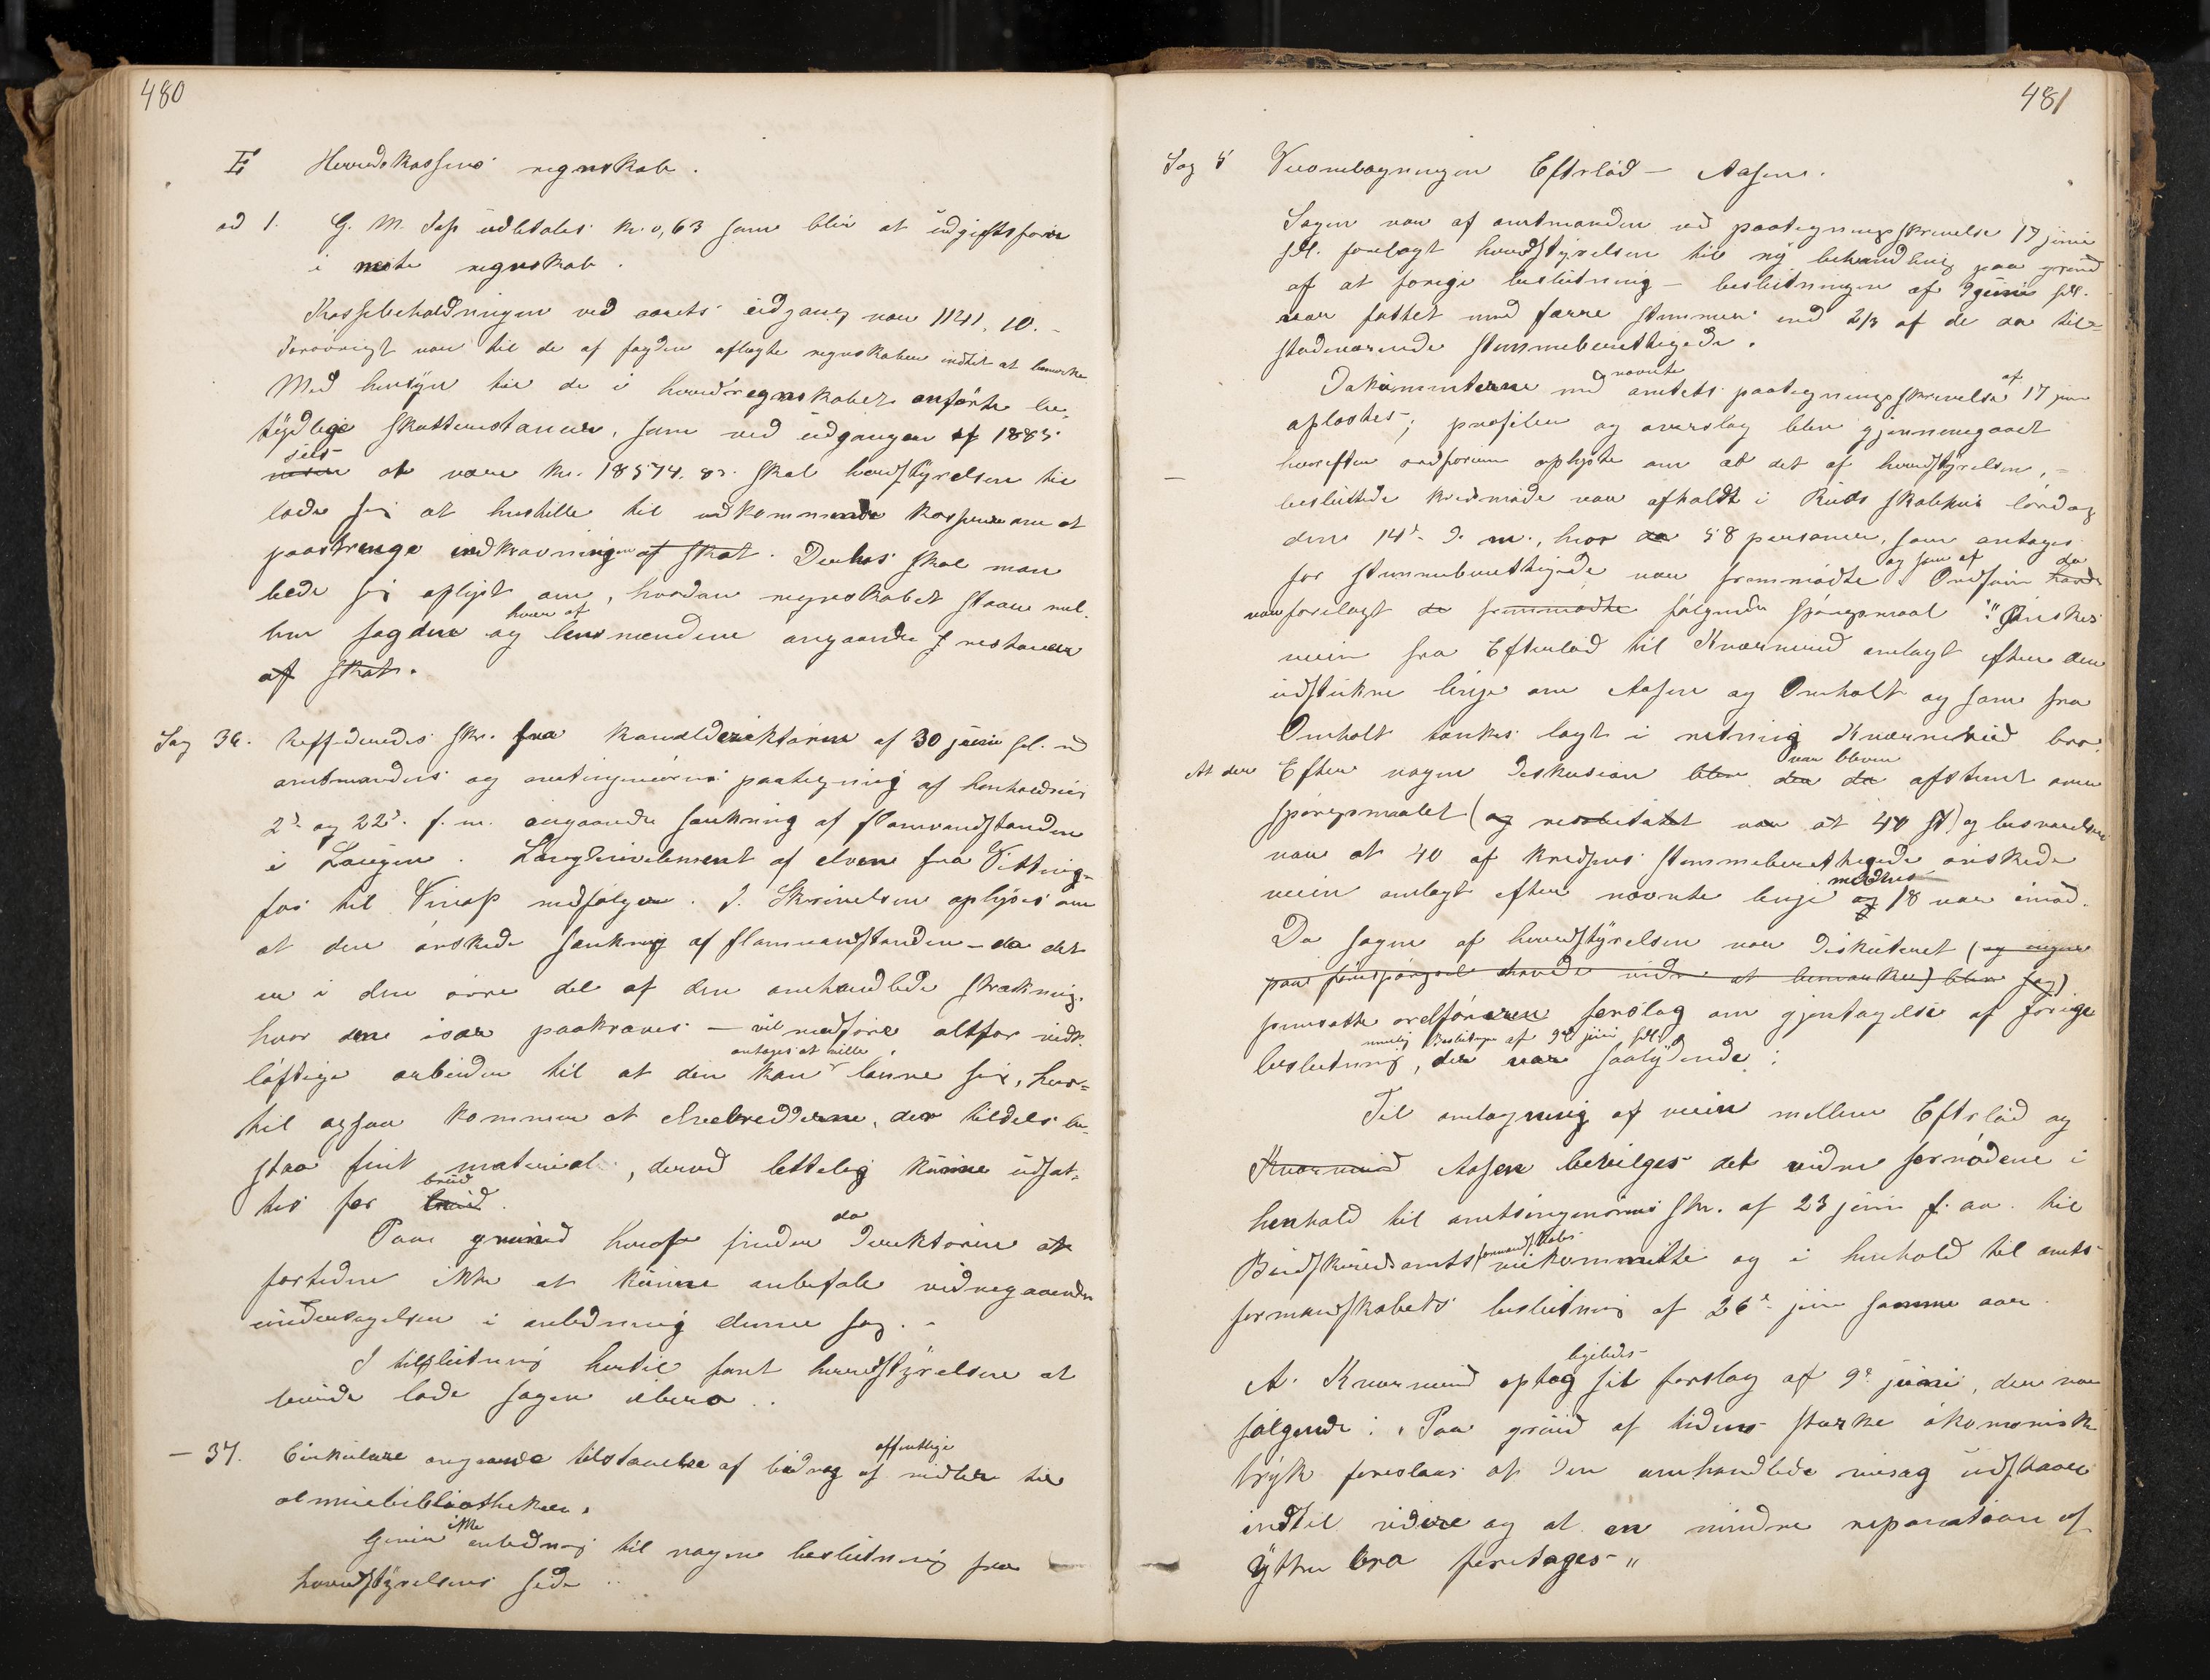 480
E Herredskassens regnskab.
ad 1. G. M. Tass udbetales kr. 0,63 som blir at udgiftsføre
i næste regnskab.
Kassebeholdningen ved aarets udgang var 1141. 10. -
Forøvrigt var til de af fogden aflagte regnskaber intet at bemærke
Med hensyn til de i herredsregnskabet anførte be-
tydelige skatterestancer, som ved udgangen af 1885
sees
at være kr. 18574. 82. skal herredstyrelsen til
lade sig at henstille til vedkommende kasserer om at
paaskynde indkrævningen af skat. Derhos skal man
bede sig oplyst om, hvordan regnskabet staar mel-
hver af
lem fogden og lensmændene angaaende restancer
af skat.
Sag 36. Refferendes skr. fra kanaldirektøren af 30 juni sl. med
amtmandens og amtingeniørens paategning af henholdsvis
2d og 22d. f. m. angaaende sænkning af flomvandstanden
i Laugen. Længdenivelement af elven fra Vitting-
fos til medfølger. I skrivelsen oplyses om
at den ønskede sænkning af flomvandstanden – da det
er i den øvre del af den omhandlede strækning,
hvor den især paakræves – vil medføre altfor vidt-
antages at ville
løftige arbeider til at den kan lønne sig, her-
til ogsaa kommer at elvebredderne, der tildels be-
staar fint material, derved lettelig kunne udsæt-
brud
tes for brud.
da
Paa grund heraf finder direktøren at
fortiden ikke at kunne anbefale videregaaende
undersøgelser i anledning denne sag. -
I tilslutning hertil fant herredstyrelsen at
burde lade sagen ibero.
- 37. Cirkulære angaaende tilstaaelse af bidrag af
offentlige
midler til
almuebibliotheker.
ikke
Givin anledning til nogen beslutning fra
herredstyrelsens side ..
481
Sag 5 Veiomlægningen Eftelød – Aasen.
Sagen var af amtmanden ved paategningsskrivelse 17 juni
sdl. forelagt herredstyrelsen til ny behandling paa grund
af at forrige beslutning – beslutningen af 9 juni sdl.
var fattet med færre stemmer end 2/3 af de da til-
stedeværende stemmeberettigede.
nævnte af
Dokumenterne med amtets paategningsskrivelse 17 juni
oplæstes; profiler og overslag blev gjennemgaaet
hvorefter ordføreren oplyste om at det af herredstyrelsen, -
besluttede kredsmøde var afholdt i Ruds skolehus lørdag
den 14d. d. m., hvor da 58 personer, som antages
og som af da
for stemmeberettigede var fremmødte. Ordføren havde
var forelagt de fremmødte følgende spørgsmaal: "Ønskes
veien fra Eftelød til Kværnerud omlagt efter den
udstukne linje om Aasen og Omholt og som fra
Omholt tænkes lagt i retning Kværnerud bro.
var bleven
At der Efter nogen diskusion blev den da afstemt over
spørgsmaalet (og resultatet var at 40 st) og besvarelsen
var at 40 af kredsens stemmeberettigede ønskede
medens
veien omlagt efter nævnte linje og 18 var imod.
Da sagen af herredstyrelsen var diskuteret (og ingen
paa forespørgsel havde videre at bemærke) blev sag)
fremsatte ordføreren forslag om gjentagelse af forrige
nemlig Beslutningen af 9de juni sdl.
beslutning, der var saalydende:
Til omlægning af veien mellem Eftelød og
Kværnerud Aasen bevilges det videre fornødne i
henhold til amtsingeniørens skr. af 23 juni f. aa. til
formandskabs
Buskeruds amts veikommitte og i henhold til amts-
formandskabets beslutning af 26d juni samme aar.
ligeledes
A. Kværnerud optog sit forslag af 9d juni, der var
følgende: "Paa grund af tidens stærke økonomiske
tryk foreslaaes at den omhandlede veisag udstaar
indtil videre og at en mindre reparation af
Yttre bro foretages"